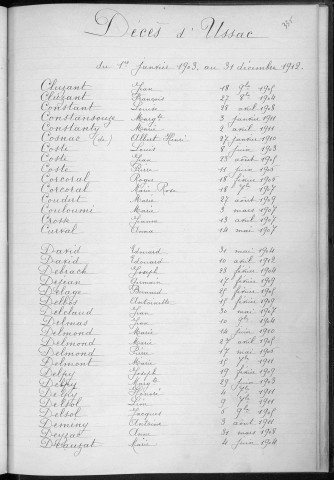 Décès d'Ussac
du 1er janvier 1903, au 31 décembre 1912.
Cluzant Jean 18 9bre 1905
Cluzant François 27 8bre 1904
Constant Louise 28 avril 1908
Constansouze Margte 3 janvier 1911
Constanty Marie 2 avril 1911
Cosnac (de) Albert Henri 27 janvier 1910
Coste Louis 8 juin 1903
Coste Jean 23 août 1905
Coste Pierre 11 juin 1905
Corcoral Roger 18 février 1905
Corcoral Marie Rose 18 7bre 1907
Coudert Marie 27 août 1909
Couloumi Marie 3 mars 1907
Crosse 13 août 1907
Curval Anna 14 mai 1907
David Edouard 30 mai 1904
David Edouard 10 avril 1912
Debrach Joseph 23 février 1904
Dejean Germain 17 février 1909
Delage Bernard 5 février 1905
Delbos Antoinette 15 février 1909
Delclaud Jean 30 mai 1907
Delmas Jean 10 9bre 1904
Delmond Marie 14 juin 1910
Delmond Marie 27 avril 1905
Delmond Pierre 17 mai 1905
Delmont Marie 15 7bre 1911
Delny Joseph 19 février 1909
Delny Margte 29 juin 1903
Delny 4 7bre 1911
Delsol 9 7bre 1911
Delsol Jacques 5 9bre 1905
Demeny Antoine 3 août 1911
Deyzac Anne 31 mars 1908
Deauzat Marie 4 juin 1904